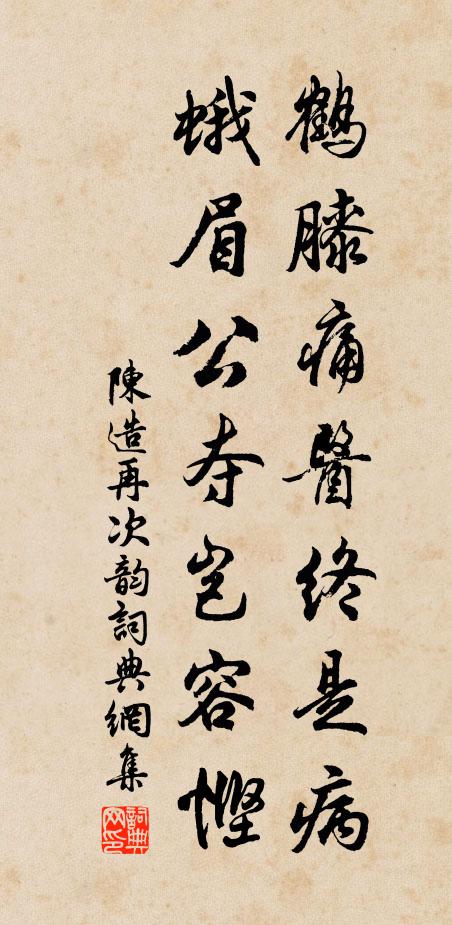 鶴膝痛醫終是病
蛾眉公夺岂容慳
陳造再次韵詞典網集
詞典网印